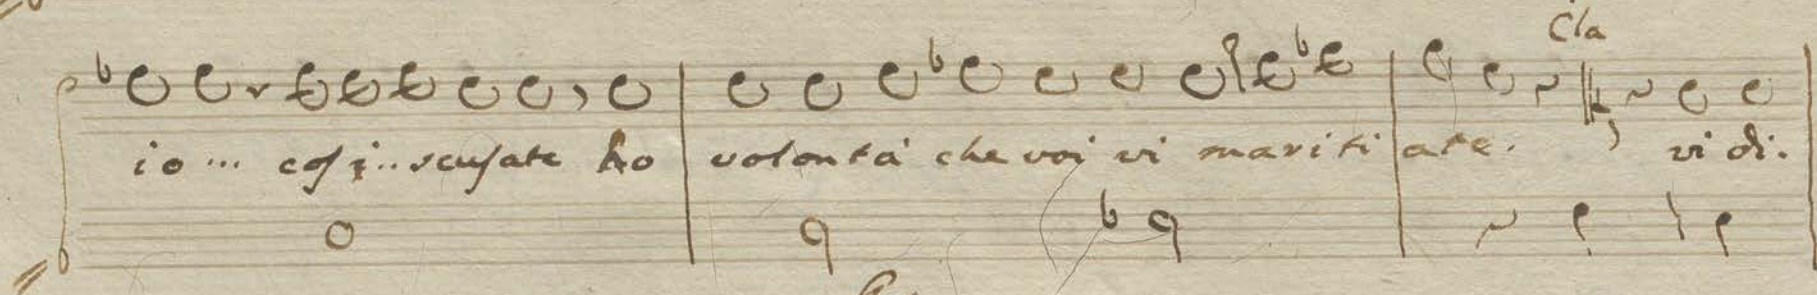 Cla
io... cosi.. scusate ho volontà che voi vi maritiate. vi di.